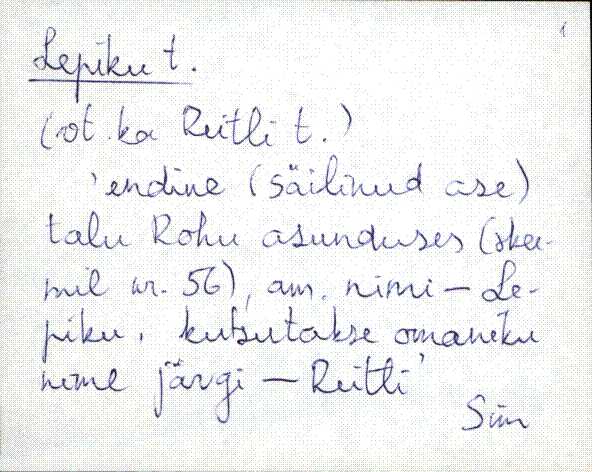 1
Lepiku t.
(vt. ka Reitli t.)
'endine (säilinud ase)
talu Rohu asunduses (skee-
mil nr. 56), am. nimi – Le-
piku, kutsutakse omaniku
nime järgi – Reitli'
Sim